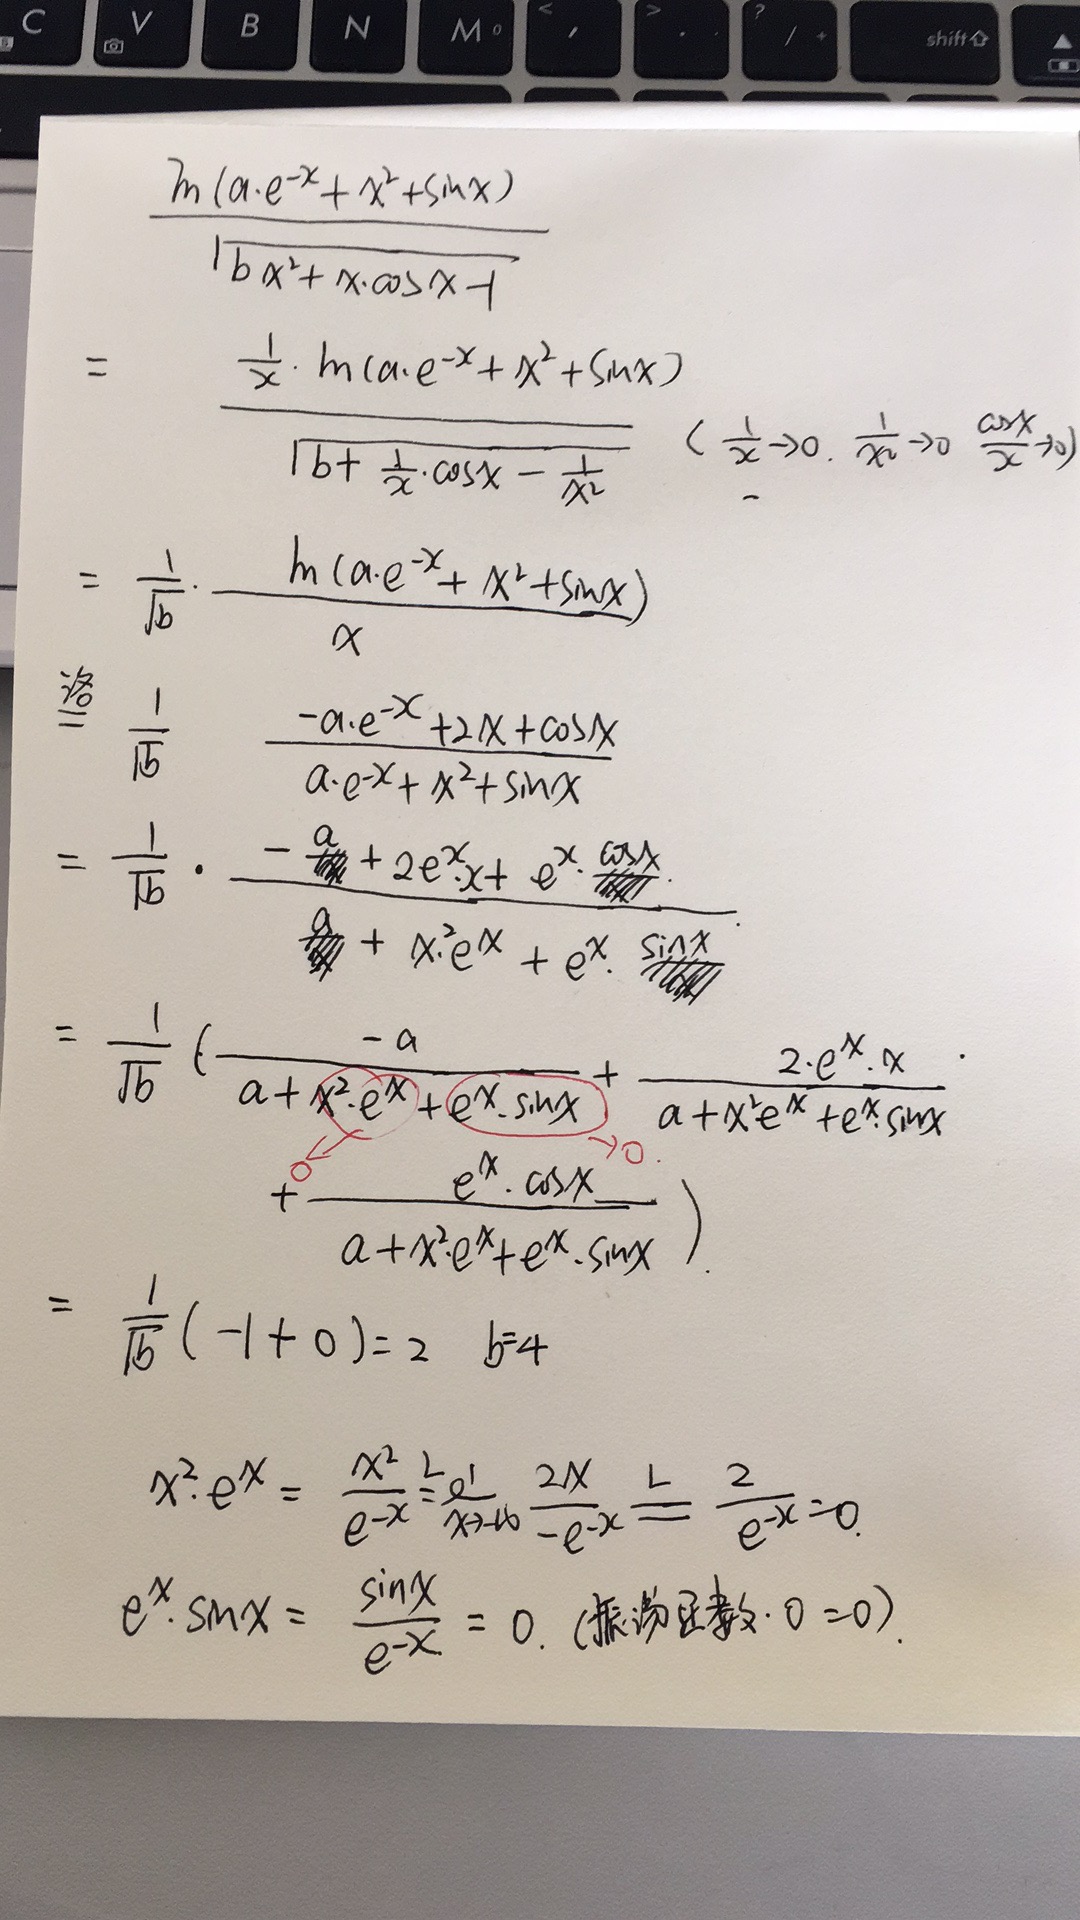 C V B N M < , > . ? / shift
ln(a·e^-x + x² + sinx)
√bx² + x·cosx - 1
= 1/x · ln(a·e^-x + x² + sinx)
√b + 1/x·cosx - 1/x² ( 1/x →0. 1/x² →0 cosx/x →0)
= 1/√b · ln(a·e^-x + x² + sinx)
x
洛
= 1/√b -a·e^-x + 2x + cosx
a·e^-x + x² + sinx
= 1/√b · -a + 2e^x·x + e^x·cosx
a + x²·e^x + e^x·sinx
= 1/√b ( -a / a + x²·e^x + e^x·sinx + 2·e^x·x / a + x²e^x + e^x·sinx
0 →0.
+ e^x·cosx / a + x²·e^x + e^x·sinx ).
= 1/√b (-1+0) = 2 b=4
x²·e^x = x²/e^-x =L x→-∞ 2x/-e^-x =L 2/e^-x = 0.
e^x·sinx = sinx/e^-x = 0. (振荡函数·0=0).